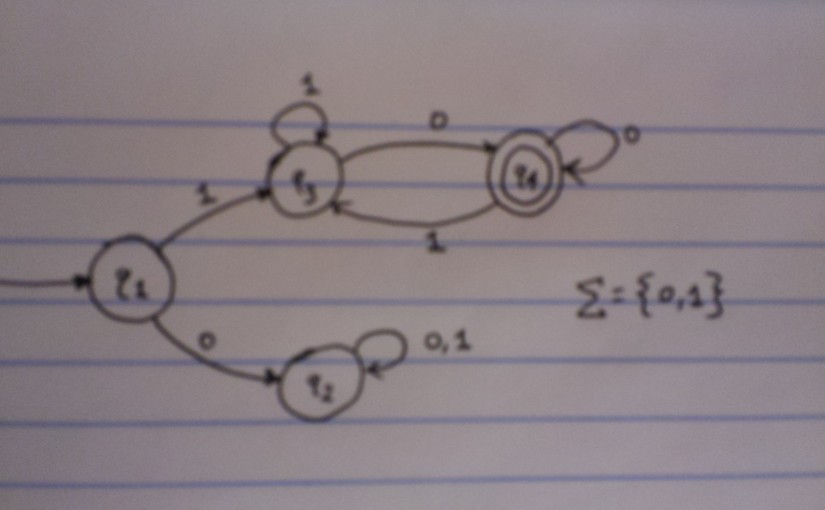 1
0
0
1
q3
q4
1
q1
Σ={0,1}
0
0,1
q2